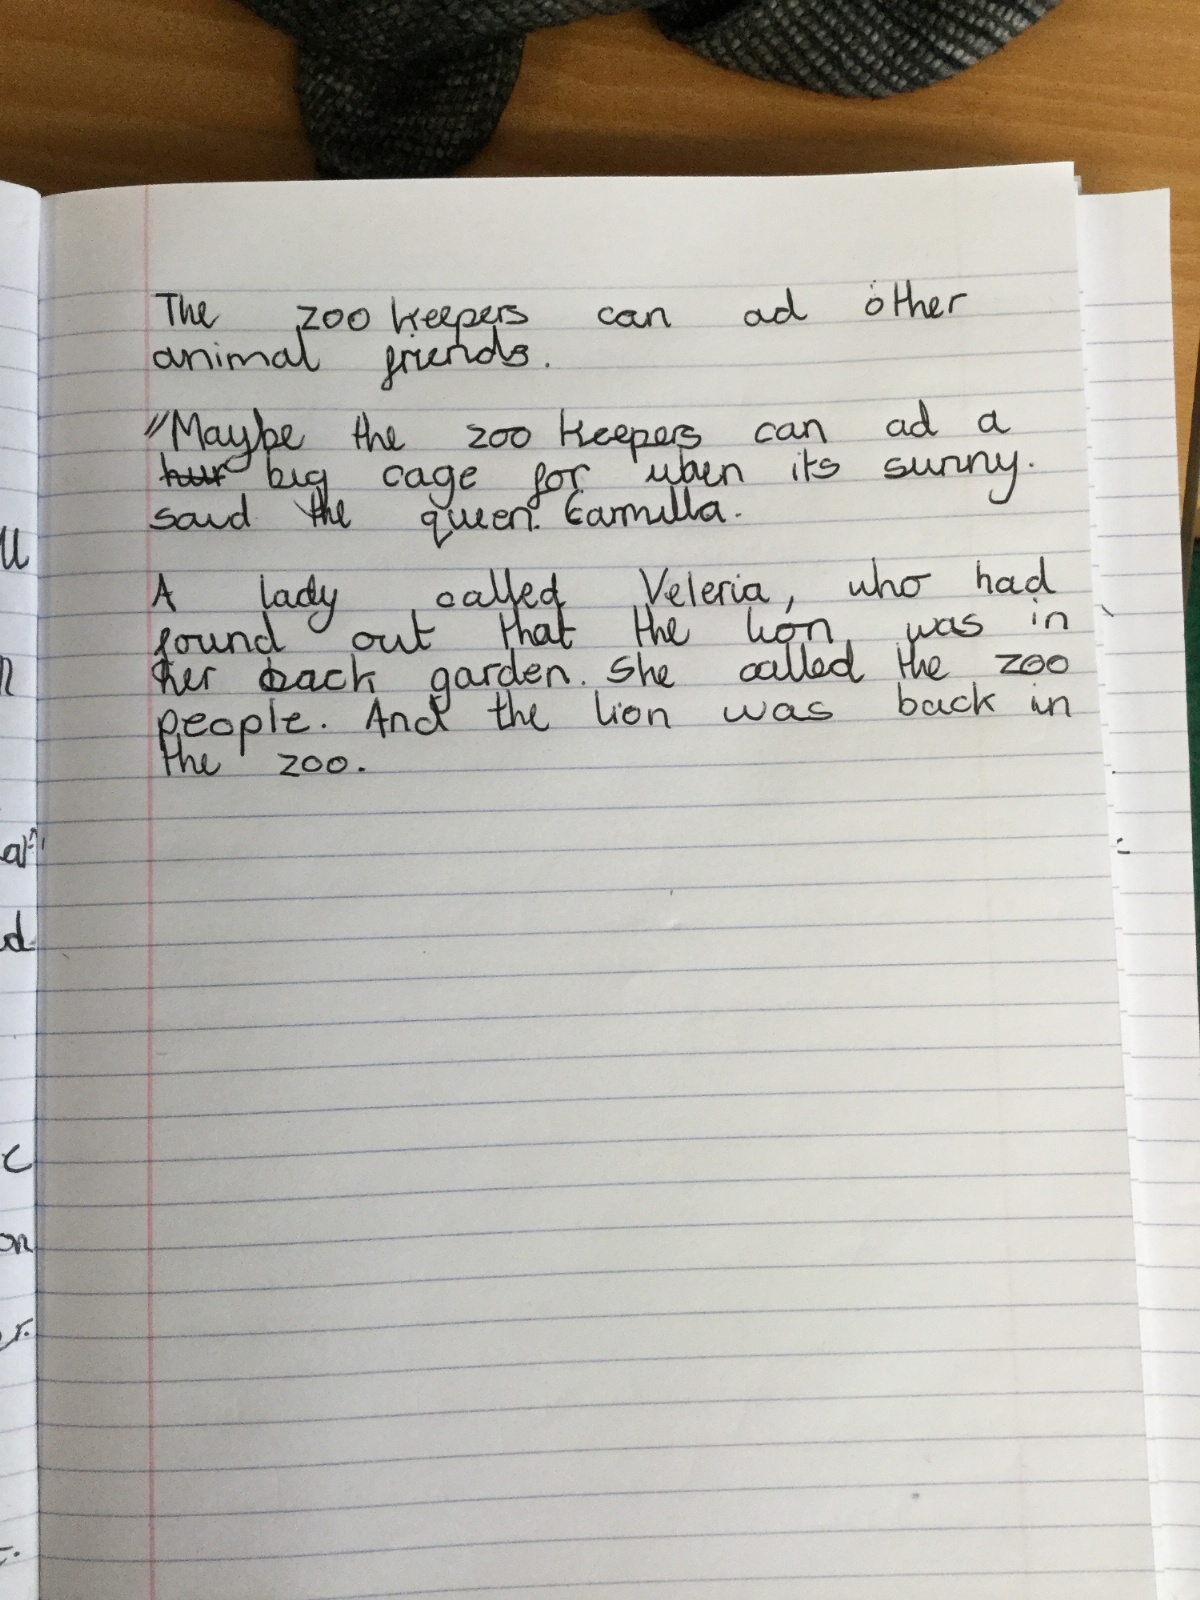 The zoo keepers can ad other
animal friends.
"Maybe the zoo keepers can ad a
big cage for when its sunny.
said the queen. Camilla.
A lady called Veleria, who had
found out that the lion was in
her back garden. She called the zoo
people. And the lion was back in
the zoo.